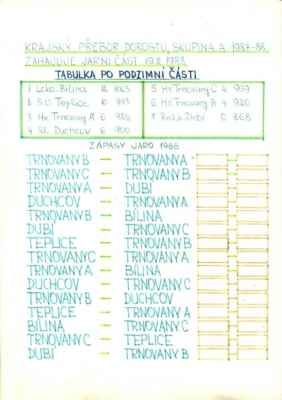 KRAJSKÝ PŘEBOR DOROSTU, SKUPINA A 1987-88
ZAHAJUJE JARNÍ ČÁST 1988
TABULKA PO PODZIMNÍ ČÁSTI
1 Loko. Bílina 12
2 Teplice 10
3 Hv. Trnovany A 6
4 Duchcov 6 900
5 Hv. Trnovany C 4 959
6 Hv. Trnovany B 4 920
7 Dubí 0 868
ZÁPASY JARO 1988
TRNOVANY B — TRNOVANY A
TRNOVANY C — TEPLICE
TRNOVANY A — DUBÍ
DUCHCOV — TRNOVANY C
TRNOVANY B — BÍLINA
DUBÍ — DUCHCOV
TEPLICE — TRNOVANY B
TRNOVANY C — DUBÍ
TRNOVANY A — BÍLINA
DUCHCOV — TEPLICE
TRNOVANY B — TRNOVANY C
BÍLINA — DUBÍ
TRNOVANY B — DUCHCOV
TEPLICE — TRNOVANY A
BÍLINA — TRNOVANY C
TRNOVANY C — TEPLICE
DUBÍ — TRNOVANY B